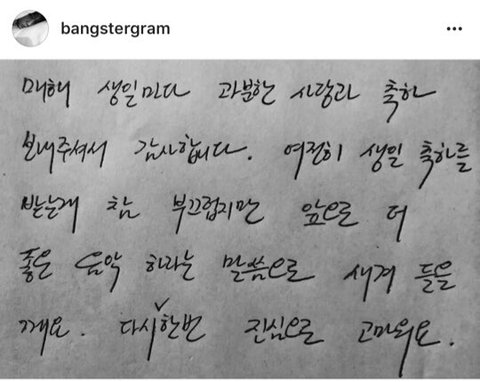 bangstergram
매해 생일마다 과분한 사랑과 축하
보내주셔서 감사합니다. 여전히 생일 축하를
받는게 참 부끄럽지만 앞으로 더
좋은 음악 하라는 말씀으로 새겨 들을
께요. 다시✓한번 진심으로 고마워요.